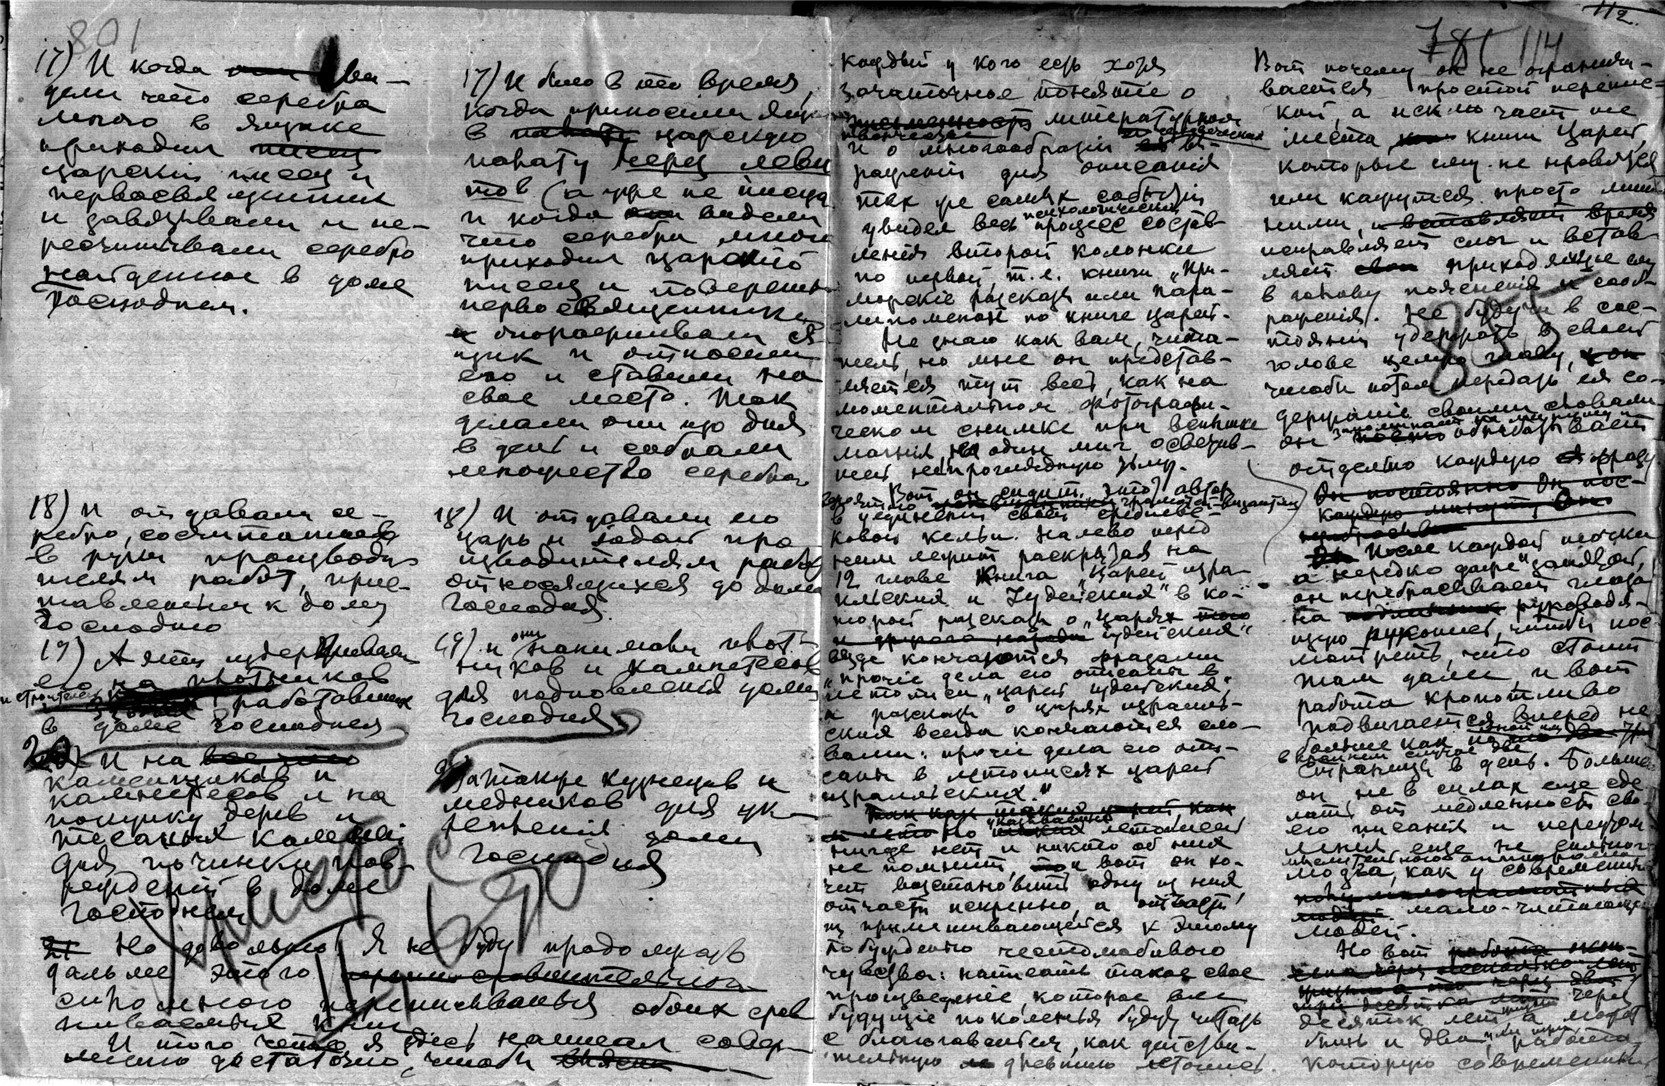 801
17) И когда ви-
дели что серебра
много в ящике
приходил
царский писец и
первосвященник
и завязывали и пе-
ресчитывали серебро
найденное в доме
Господнем.
18) и отдавали се-
ребро, сосчитанное
в руки производи-
телям работ, прис-
тавленным к дому
Господню
19) А эти издерживали
его на плотников
и строителей работавших
в доме Господнем
20) И на
каменщиков и
камнетесов и на
покупку дерев и
тесаных камней
для починки пов-
реждений в доме
Господнем
Но довольно! Я не буду продолжать
дальше этого
сплошного переписыванья обоих срав-
ниваемых книг
И того что я здесь написал совер-
шенно достаточно, чтобы
17) И было в то время,
когда приносили ящик
в царскую
палату через леви-
тов (а уже не писца
и когда видели
что серебра много
приходил царский
писец и поверенный
первосвященника
и опоражнивали я-
щик и относили
его и ставили на
свое место. Так
делали они изо дня
в день и собрали
множество серебра
18) И отдавали его
царь и Иодай про-
изводителям работ
относящихся до дома
Господня
19) и они нанимали плот-
ников и камнетесов
для подновления дома
Господня
а также кузнецов и
медников для ук-
репления дома
Господня
каждый у кого есть хотя
зачаточное понятие о
литературном
и о многообразии вы-
ражений для описания
тех же самых событий
увидел весь психологический процесс состав-
ления второй колонки
по первой, т.е. книги „При-
морские рассказы или Пара-
липоменон по книге царей.
Не знаю как вам, чита-
тель, но мне он представ-
ляется тут весь, как на
моментальном фотографи-
ческом снимке при вспышке
магния, на один миг осветив-
шей непроглядную тьму.
Вот
в уединении своей средневе-
ковой кельи. Налево перед
ним лежит раскрытая на
12 главе книга „Царей изра-
ильских и Иудейских" в ко-
торой рассказы о „царях
иудейских"
везде кончаются фразами
„прочие дела его описаны в
летописи „царей иудейских,
а рассказы о царях израиль-
ских всегда кончаются сло-
вами: прочие дела его опи-
саны в летописях царей
израильских."
Но указанных летописей
нигде нет и никто об них
не помнит, и вот он хо-
чет возстановить одну из них,
отчасти искренно, а отчасти
из примешивающегося к этому
побуждению честолюбивого
чувства: написать такое свое
произведение, которое все
будущие поколенья будут читать
с благоговением, как действи-
тельную древнюю летопись.
112
785 114
Вот почему он не ограничи-
вается простой перепис-
кой, а исключает те
места книги Царей,
которые ему не нравятся
или кажутся просто лиш-
ними, и вставляет время
исправляет слог и встав-
ляет приходящие ему
в голову пояснения и сооб-
ражения. Не будучи в сос-
тоянии удержать в своей
голове целую главу,
чтобы потом передать ея со-
держание своими словами
он запоминает и
отдельно каждую фразу
После каждой точки
а нередко даже „запятой,
он перебрасывает глаза
на руководя-
щую рукопись, чтобы пос-
мотреть, что стоит
там далее, и вот
работа кропотливо
подвигается вперед не
больше как
в крайнем случае две
страницы в день. Больше
он не в силах еще сде-
лать от медленности сво-
его писания и переутом-
ления еще не сильного
мозга, как у современных
мало-читающих
людей.
Но вот
через
десяток лет а может
быть и два или три, работа
которую современный